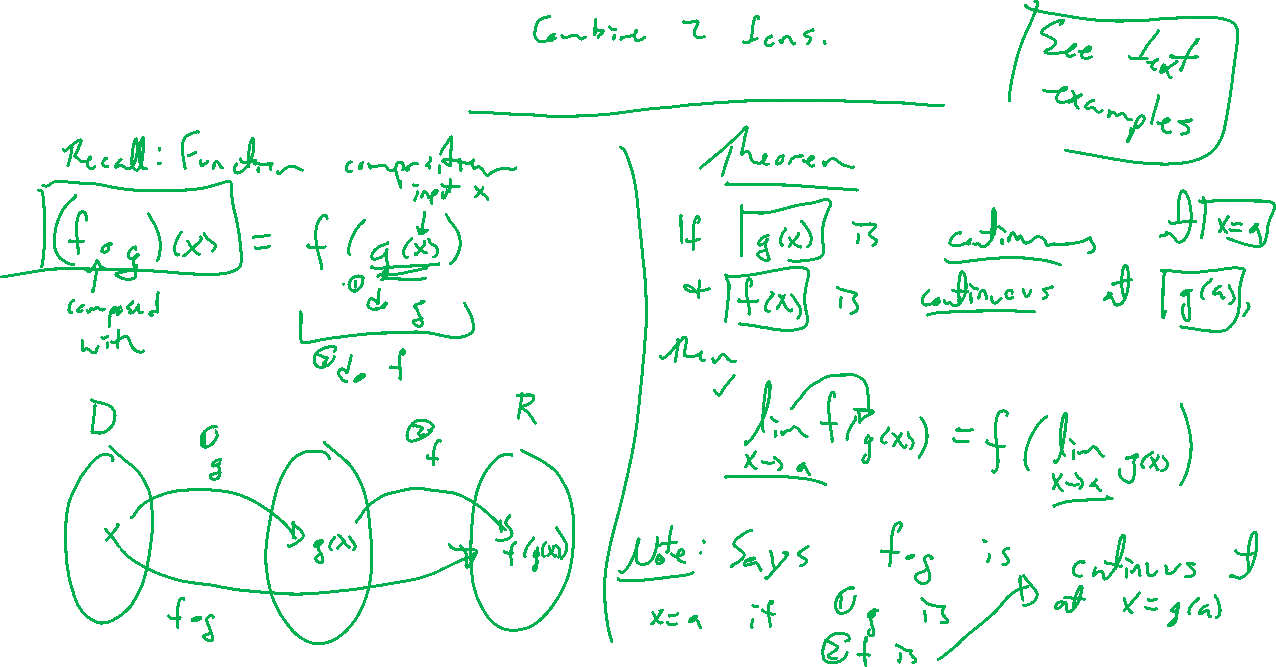 Combine 2 fcns.
See text
examples
Recall: Function composition
input x
(f∘g)(x) = f(g(x))
composed
with
① do g
② do f
D
① g
② f
R
x
g(x)
f(g(x))
f∘g
Theorem
If g(x) is continuous at x=a
+ f(x) is continuous at g(a),
then
lim x→a f(g(x)) = f(lim x→a g(x))
Note: Says f∘g is continuous at
x=a if ① g is
② f is
at x=g(a)